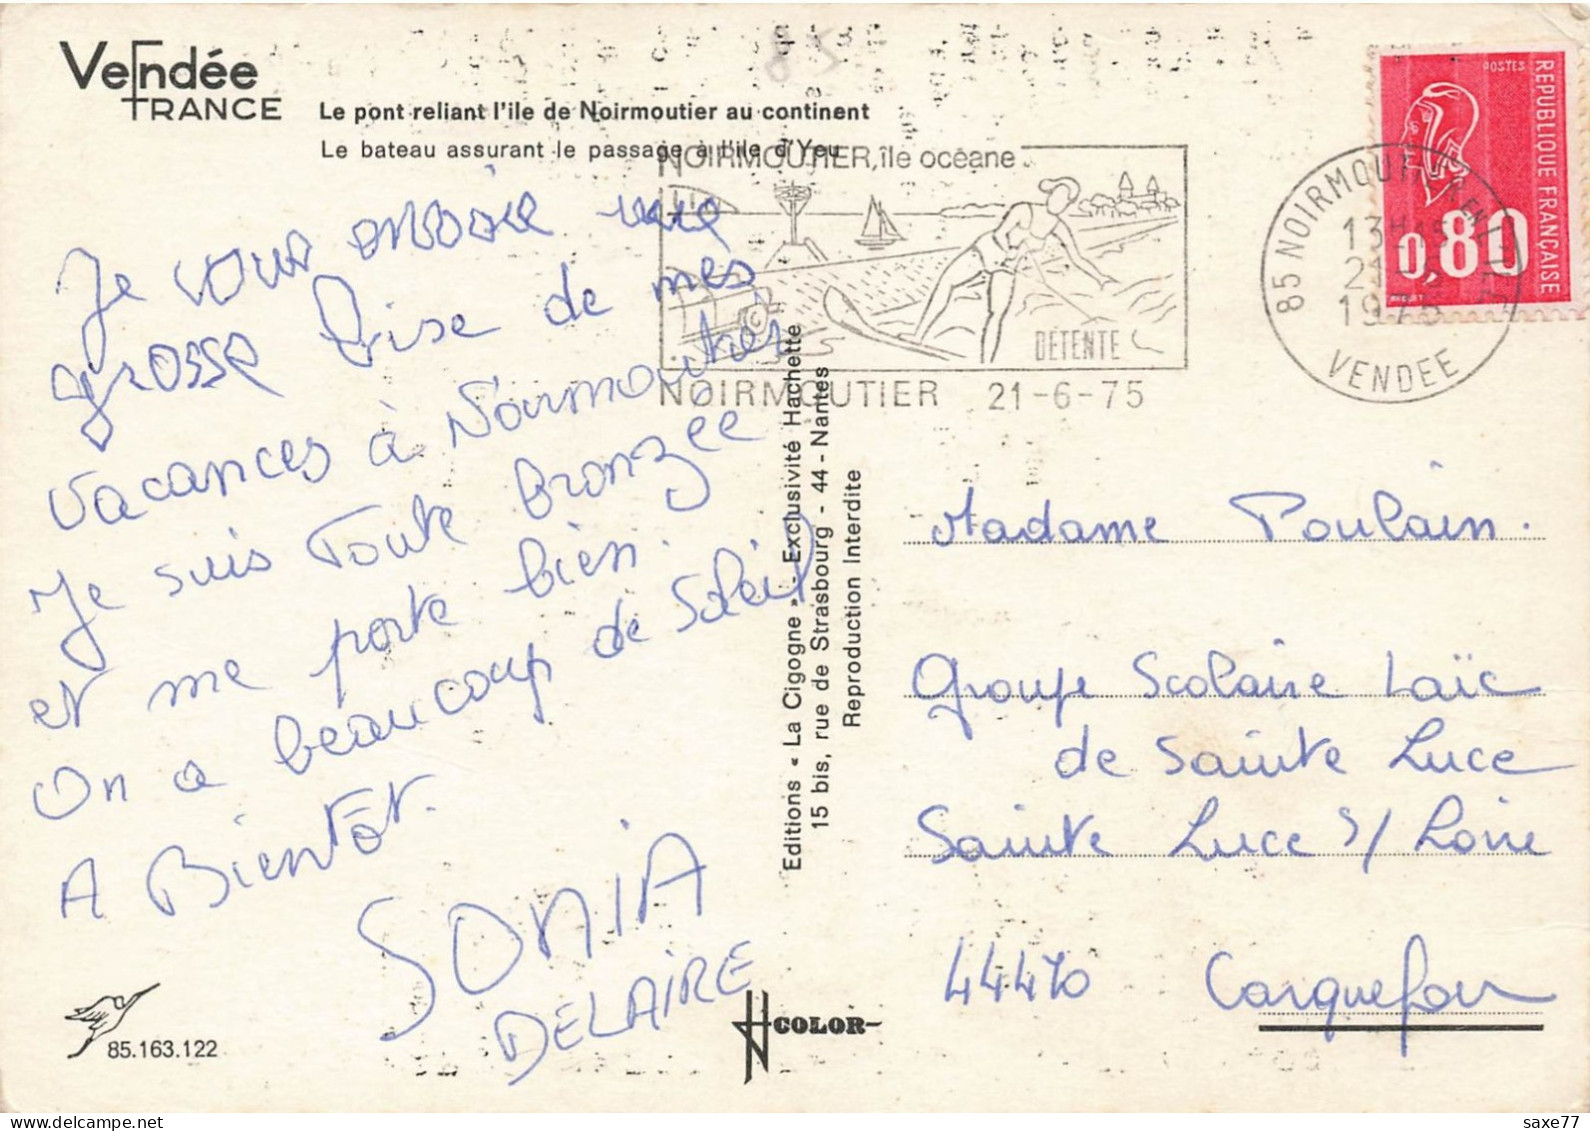 Vendée
FRANCE
Le pont reliant l'ile de Noirmoutier au continent
Le bateau assurant le passage à l'ile d'Yeu
85
NOIRMOUTIER, île océane
DÉTENTE
NOIRMOUTIER 21-6-75
85 NOIRMOUTIER EN L'ILE
13H15
21-6
1975
VENDEE
POSTES
REPUBLIQUE FRANÇAISE
0,80
Je vous envoie une
grosse bise de mes
vacances à Noirmoutier
Je suis Toute bronzée
et me porte bien.
On a beaucoup de Soleil
A Bientôt.
SONIA
DELAIRE
85.163.122
Editions « La Cigogne » - Exclusivité Hachette
15 bis, rue de Strasbourg - 44 - Nantes
Reproduction Interdite
COLOR
Madame Poulain.
Groupe Scolaire Laïc
de Sainte Luce
Sainte Luce S/ Loire
44470 Carquefou
saxe77